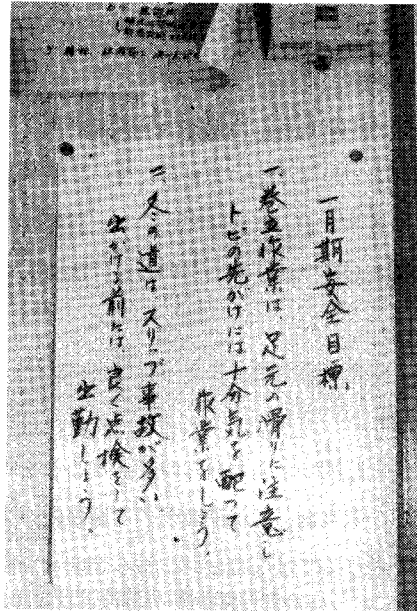 一月期安全目標
一、巻立作業は、足元の滑りに注意し
トビの先がけには十分気を配って
作業をしよう。
二、冬の道はスリップ事故が多い
出かける前には、良く点検をして
出勤しよう。